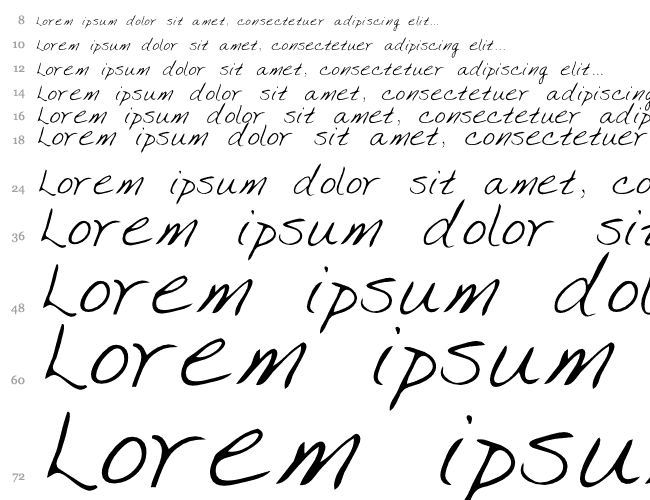 8 Lorem ipsum dolor sit amet, consectetuer adipiscing elit...
10 Lorem ipsum dolor sit amet, consectetuer adipiscing elit...
12 Lorem ipsum dolor sit amet, consectetuer adipiscing elit...
14 Lorem ipsum dolor sit amet, consectetuer adipiscing
16 Lorem ipsum dolor sit amet, consectetuer adip
18 Lorem ipsum dolor sit amet, consectetuer
24 Lorem ipsum dolor sit amet, co
36 Lorem ipsum dolor sit
48 Lorem ipsum dol
60 Lorem ipsum
72 Lorem ipsu